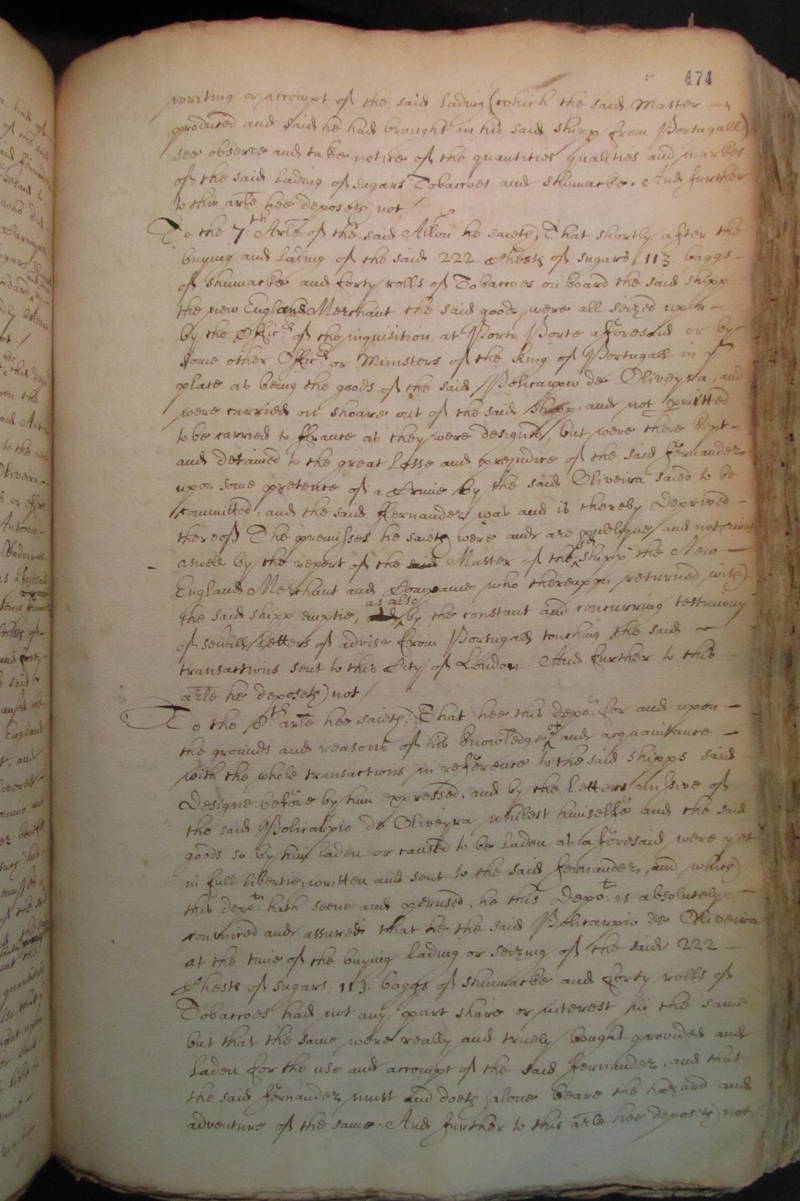 474
writing or accompt of the said lading (which the said Master
produced and said he had brought in his said shipp from Portugall)
see observe and take notice of the quantities qualities and markes
of the said lading of sugars Tobaccoes and shumacke. And further
to this arle hee deposeth not /
To the 7th Arle of the said Allon he saieth, That shortly after the
buying and lading of the said 222 Chests of sugars, 113 baggs
of shumacke and forty rolls of Tobaccoes on board the said shipp
the new England Merchant the said goods were all seized upon
by the Officrs of the inquisition at Porte Porte aforesaid or by
some other Officrs or Ministers of the King of Portugall in yt
place as being the goods of the said Policarpio de Oliveyra, and
were carried on shoare out of the said shipp, and not permitted
to be carried to France as they were designed, but were there kept
and detained to the great losse and prejudice of the said Fernandez
upon some pretence of a Crime by the said Oliveira saied to be
committed, and the said Fernandez was and is thereby deprived
thereof The premisses he saieth were and are publique and notorious
aswell by the report of the said Master of the sd shipp the New
England Merchant and Companie who thereupon returned with
the said shipp emptie, as also by the constant and concurring testimony
of sevall letters of advise from Portugall touching the said
transactions sent to this City of London And further to this
arle he deposeth not /
To the 8th arle hee saieth, That hee this depot for and upon
the grounds and reasons of his knowledge of and acquaintance
with the whole transactions in reference to the said shipps said
designe before by him expressed, and by the letters missive of
the said Policarpio de Oliveyra whilest himselfe and the said
goods so by him laden or caused to be laden as aforesaid were yet
in full libertie, written and sent to the said Fernandez, and which
this depot hath seene and perused, he this Depot is absolutely
convinced and assured that he the said Policarpio de Oliveira
at the time of the buying lading or seizing of the said 222
Chests of sugars, 113 baggs of shumacke and forty rolls of
Tobaccoes had not any part share or interest in the same
but that the same were really and truely bought provided and
laden for the use and accompt of the said Fernandez, and that
the said Fernandez must and doeth alone beare the hazard and
adventure of the same. And further to this arle hee deposeth not /